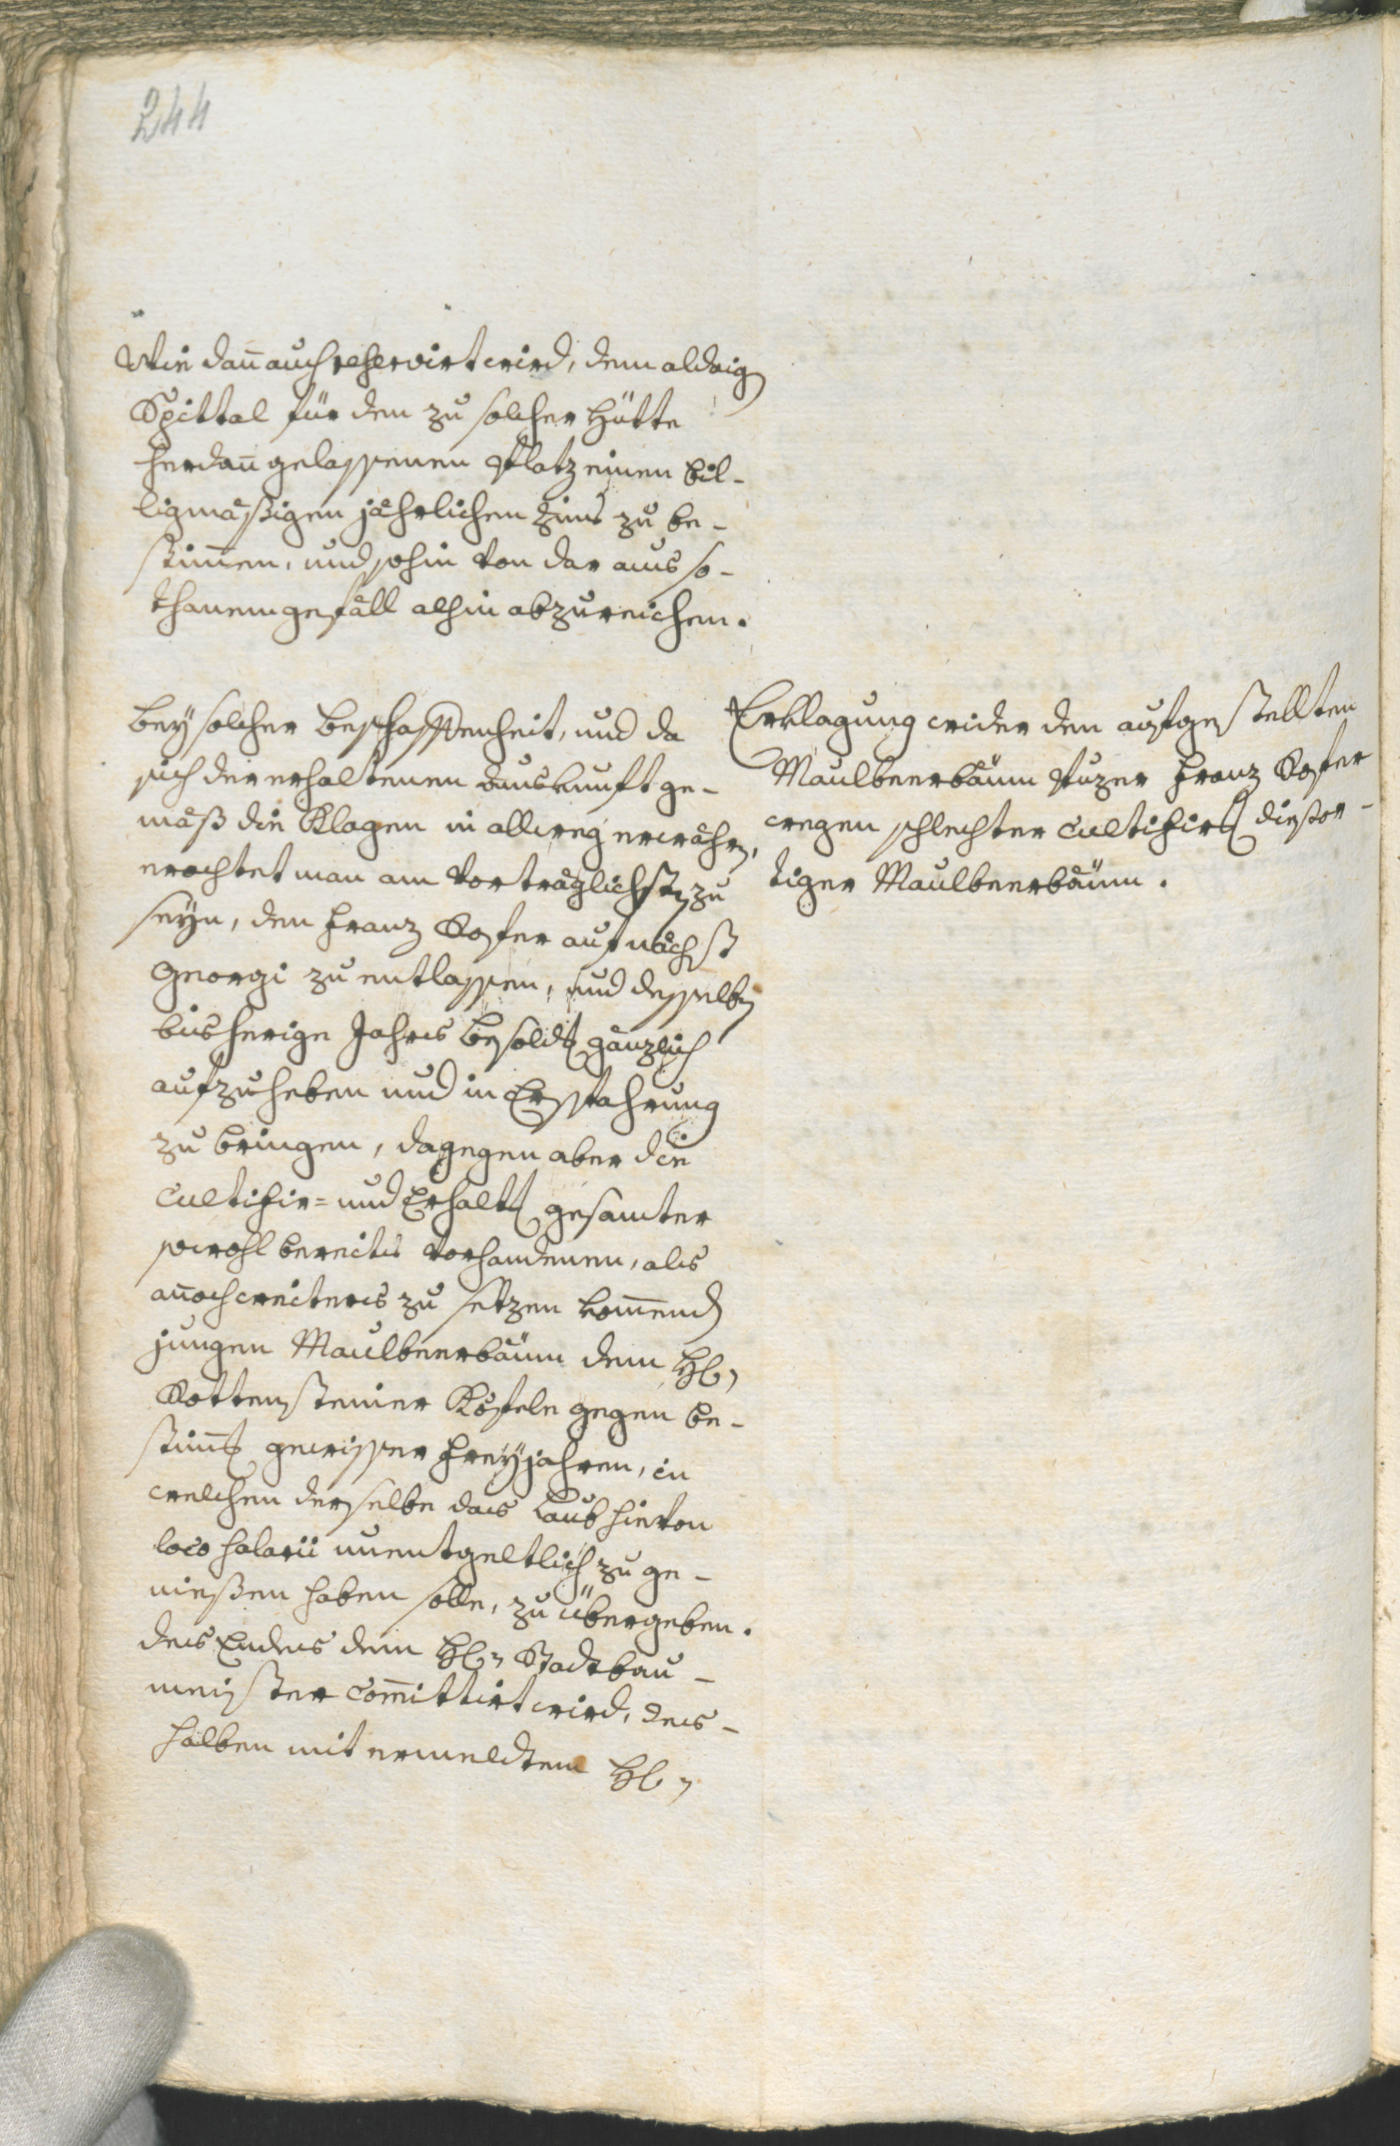 244
Wie dan̄ auch reservirt wird, dem aldaig
Spittal für den zu solcher Hütte
herdan̄ gelassenen Platz einen bil-
ligmäßigen jährlichen Zins zu be-
stim̄en, und sohin von dar aus so-
thanem gefäll alhin abzureichen.
Bey solcher Beschaffenheit, und da
sich der erhaltenen auskunft ge-
mäß die Klagen in allweg erwahrn,
erachtet man am vorträglichsten zu
seyn, den Franz Kofer auf nächst
Georgi zu entlassen, und desselben
bisherige Jahrs besoldg gänzlich
aufzuheben und in Ersparung
zu bringen, dagegen aber die
Cultifir= und Erhaltg gesamter
sowohl bereits vorhandenen, als
an̄och weiters zu setzen kom̄enden
jungen Maulbeerbäum dem H.
Rottensteiner Köfele gegen be-
stim̄g gewisser Freyjahren, in
welchen derselbe das Laub hievon
loco salarii unentgeltlich zu ge-
nießen haben solle, zu übergeben.
des Endes dem H. Stadtbau-
meister com̄ittirt wird, des-
halben mit ermeldtem H.
Erklagung wider den aufgestellten
Maulbeerbäum Puzer Franz Kofer
wegen schlechter Cultifirg diesor-
tiger Maulbeerbäum.